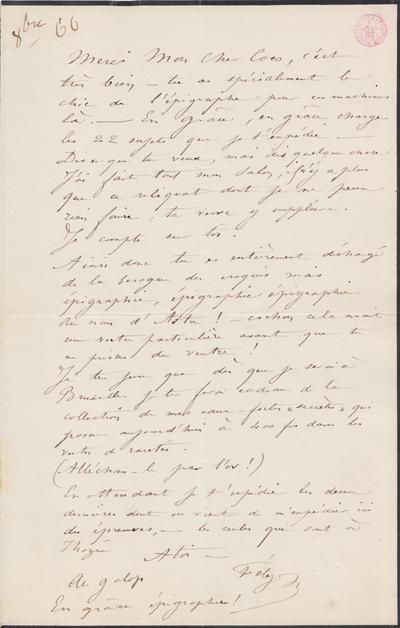 8bre 66
Merci Mon Cher Coco, c'est
très bien — tu as spécialement le
chic de l'épigraphe pour ces machines
là. — En grâce, en grâce charge
les 22 sujets que je t'expédie. —
Dis ce que tu veux, mais dis quelque chose
J'ai fait tout mon Salon, il n'y a plus
que ce reliquat dont je ne peux
rien faire, ta verve y suppléera.
Je compte sur toi.
Ainsi donc tu es entièrement déchargé
de la besogne des croquis mais
épigraphie, épigraphie épigraphie
au nom d' ! — cochon cela avait
un vertu particulière avant que tu
ne prisses du ventre !
Je te jure que dès que je serai à
Bruxelles je te ferai cadeau de la
collection de mes eaux-fortes "secrètes" qui
 aujourd'hui à 400 fcs dans les
ventes de raretés.
(Alléchons-le par l'or !)
En attendant je t'expédie les deux
dernières dont on vient de m'expédier ici
des épreuves, — les seules qui sont à

A toi —
Au galop Fély
En grâce épigraphie !